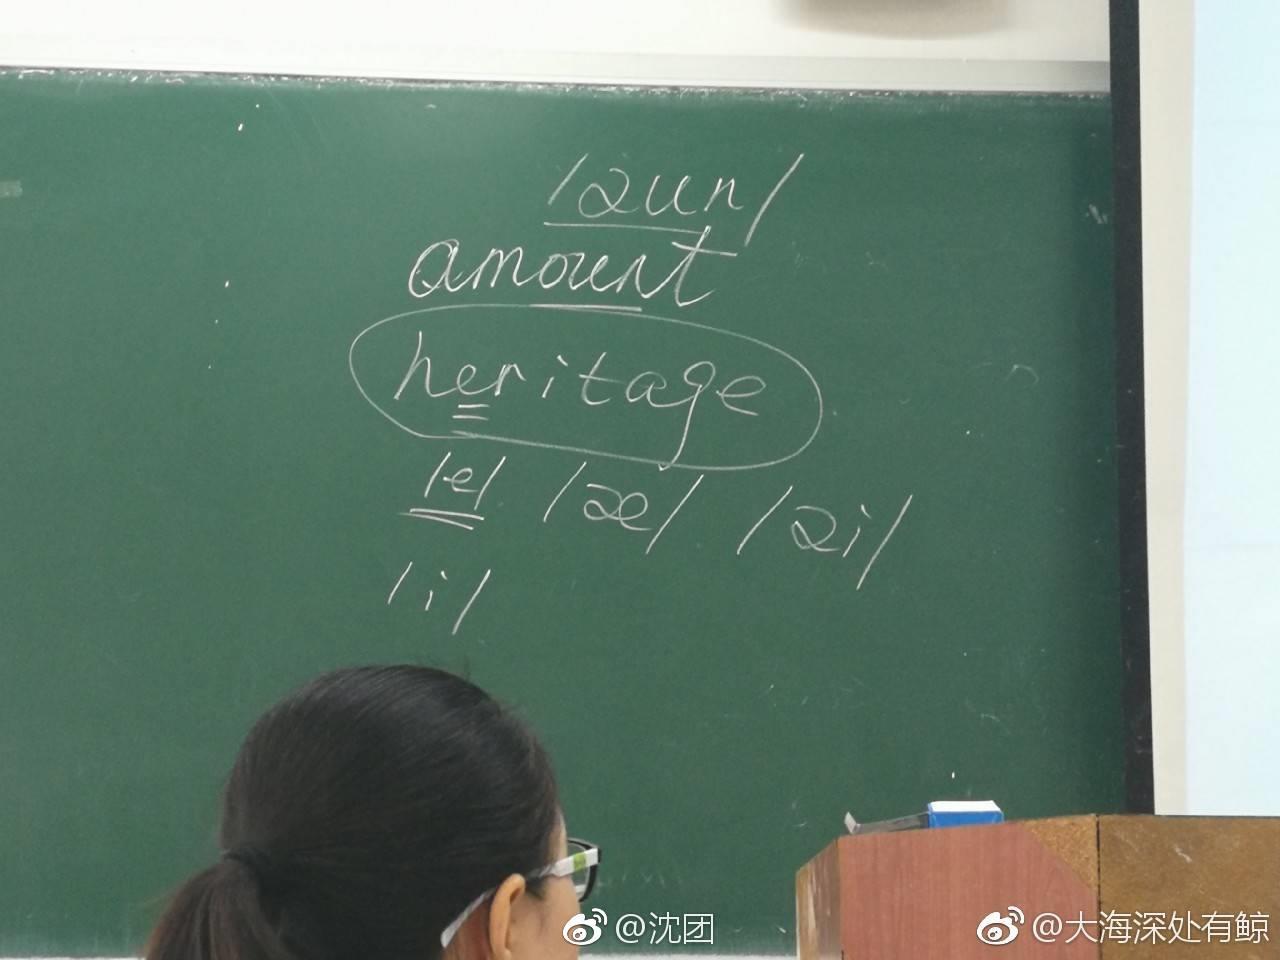 /aun/
amount
heritage
/e/ /æ/ /ai/
/i/
@沈团
@大海深处有鲸